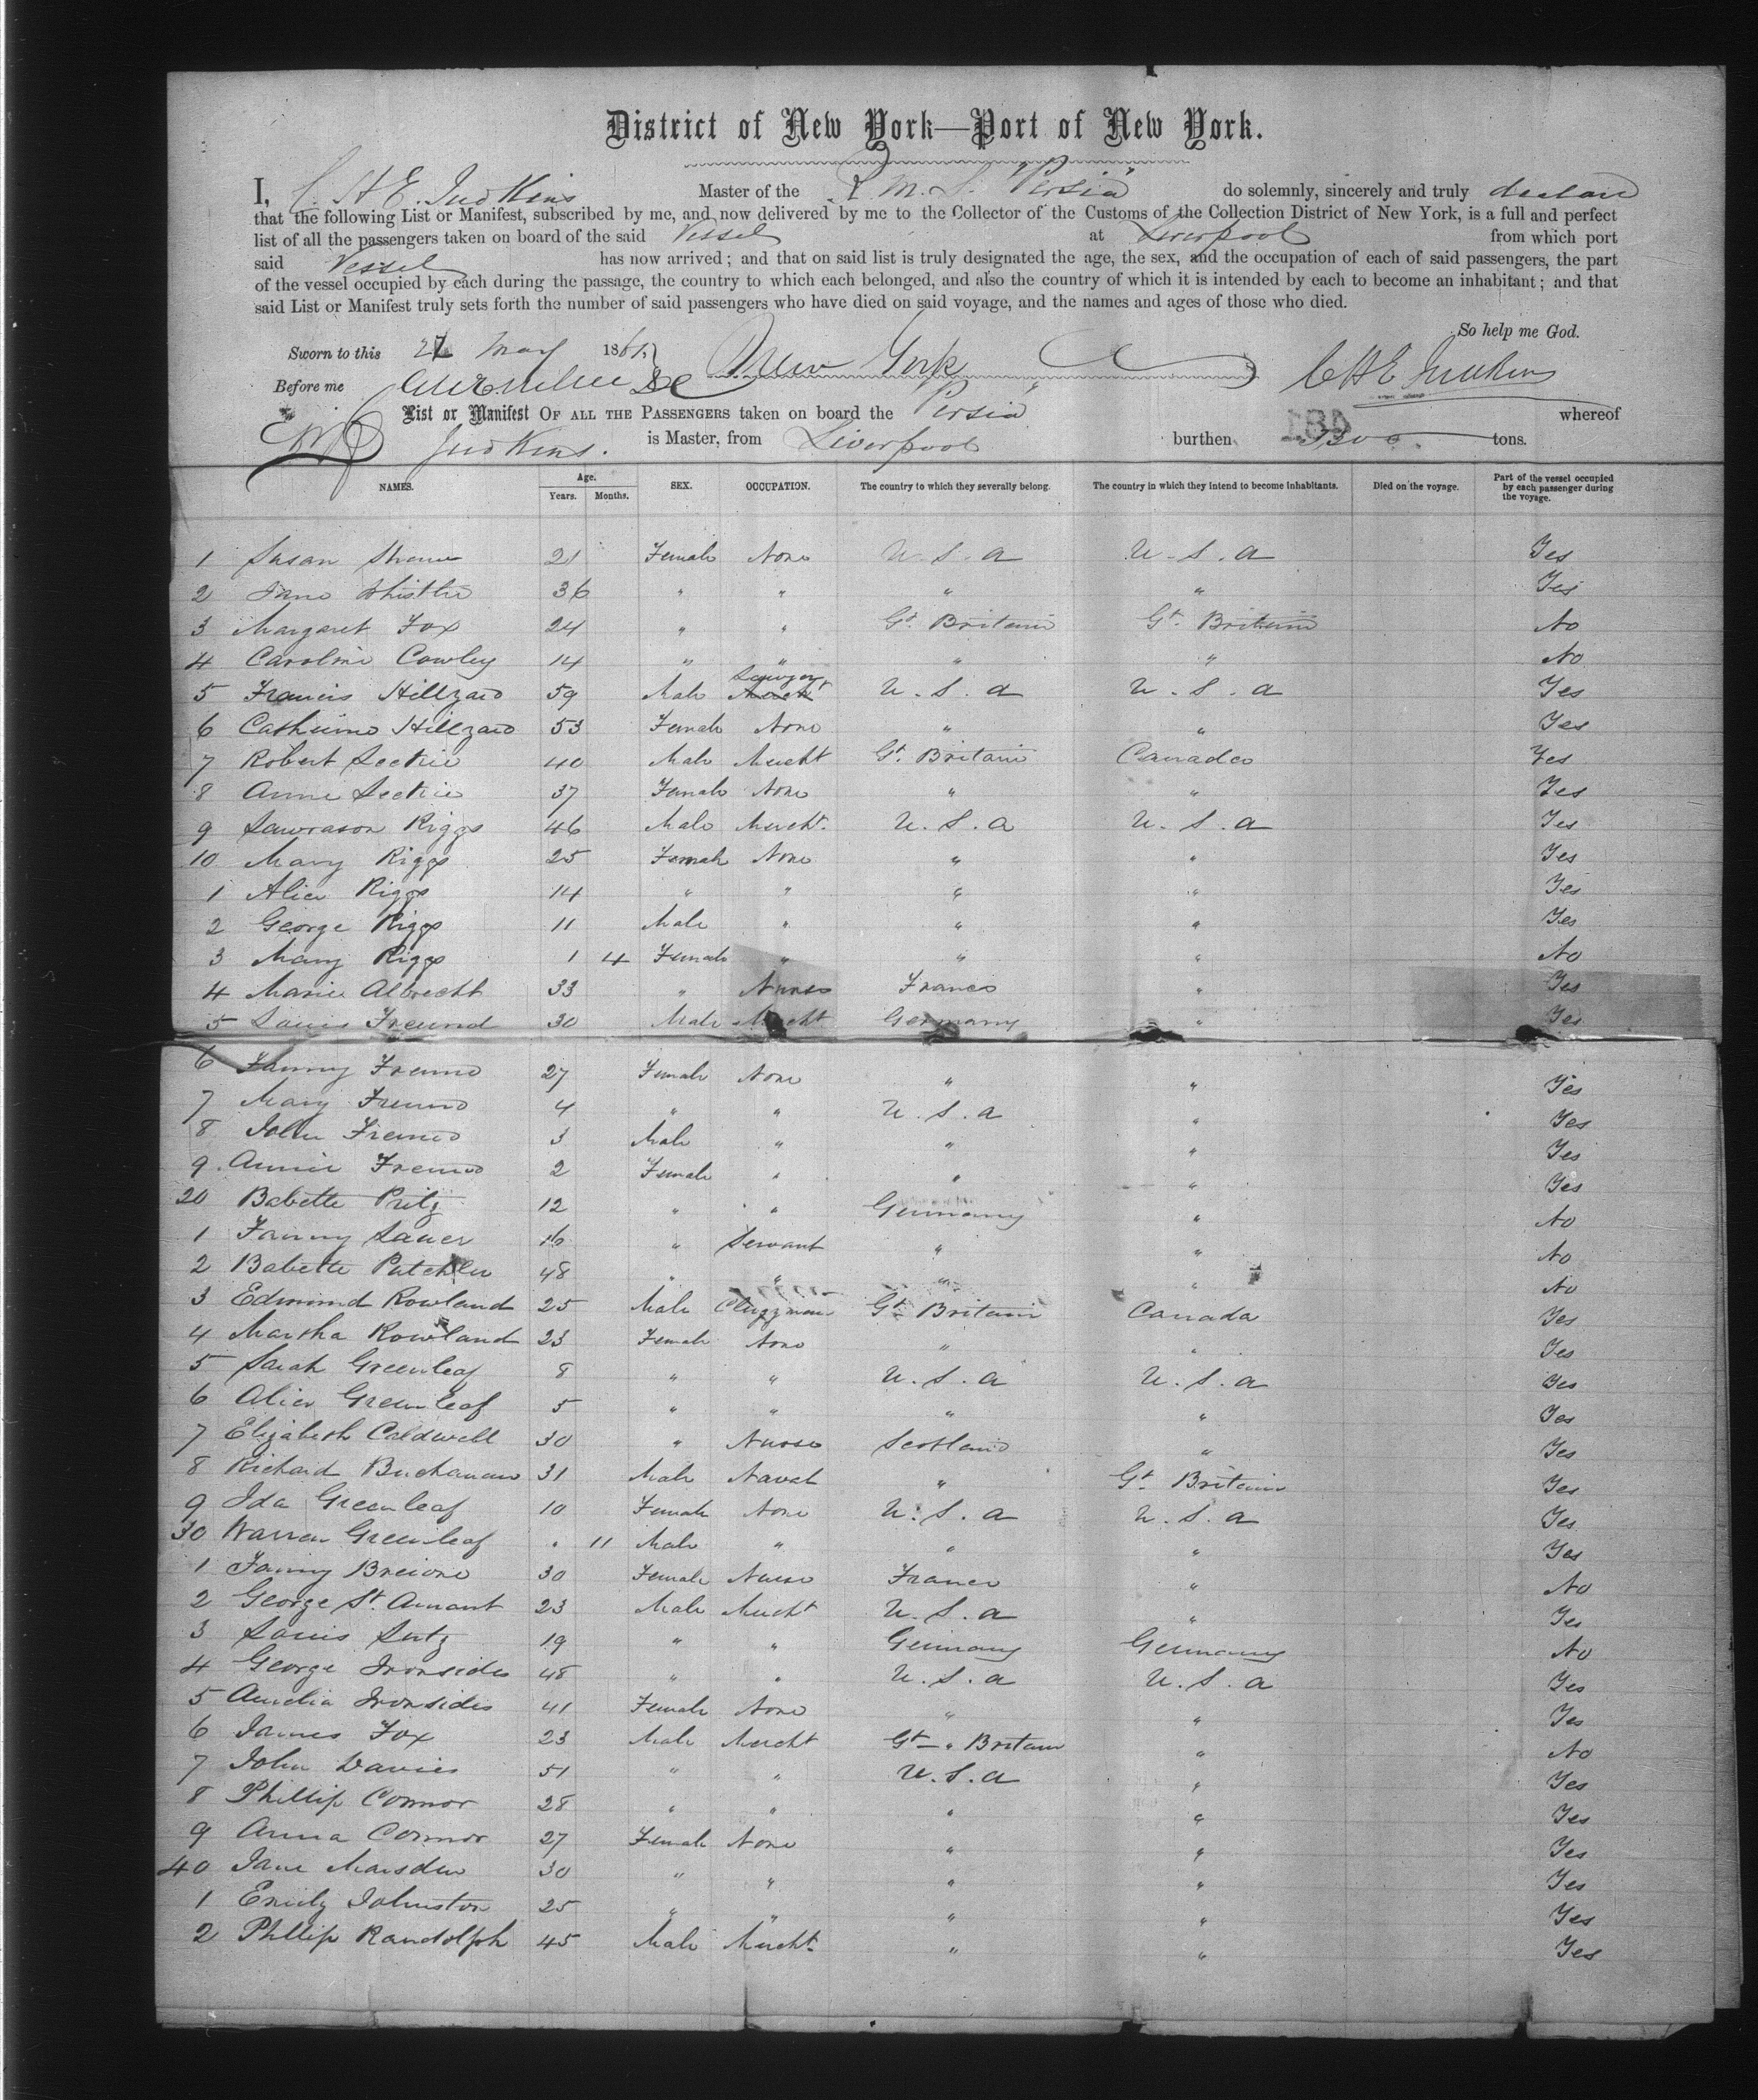 District of New York—Port of New York.
I, C. H. E. Judkins Master of the R. M. S. "Persia" do solemnly, sincerely and truly declare
that the following List or Manifest, subscribed by me, and now delivered by me to the Collector of the Customs of the Collection District of New York, is a full and perfect
list of all the passengers taken on board of the said Vessel at Liverpool from which port
said Vessel has now arrived; and that on said list is truly designated the age, the sex, and the occupation of each of said passengers, the part
of the vessel occupied by each during the passage, the country to which each belonged, and also the country of which it is intended by each to become an inhabitant; and that
said List or Manifest truly sets forth the number of said passengers who have died on said voyage, and the names and ages of those who died.
So help me God.
Sworn to this May 1861. New York C H E Judkins
Before me
List or Manifest OF ALL THE PASSENGERS taken on board the Persia whereof
Judkins. is Master, from Liverpool burthen tons.
NAMES. Age. Years. Months. SEX. OCCUPATION. The country to which they severally belong. The country in which they intend to become inhabitants. Died on the voyage. Part of the vessel occupied by each passenger during the voyage.
1 Susan 21 Female None U.S.A U.S.A Yes
2 Jane 36 " " " " Yes
3 Margaret Fox 24 " " Gt. Britain Gt. Britain No
4 Caroline Cowley 14 " " " " No
5 Francis Hillzard 59 Male Lawyer Mercht U.S.A U.S.A Yes
6 Catherine Hillzard 53 Female None " " Yes
7 Robert 40 Male Mercht Gt. Britain Canada Yes
8 Anne 37 Female None " " Yes
9 Lawrason Riggs 46 Male Mercht. U.S.A U.S.A Yes
10 Mary Riggs 25 Female None " " Yes
1 Alice Riggs 14 " " " " Yes
2 George Riggs 11 Male " " " Yes
3 Mary Riggs 1 4 Female " " " No
4 Marie Albrecht 33 " Nurse France " Yes
5 Louis Freund 30 Male Mercht Germany " Yes
6 Fanny Freund 27 Female None " " Yes
7 Mary Freund 4 " " U.S.A " Yes
8 John Freund 3 Male " " " Yes
9 Annie Freund 2 Female " " " Yes
20 Babette Pritz 12 " " Germany " No
1 Fanny Sauer 16 " Servant " " No
2 Babette 48 " " " " No
3 Edmund Rowland 25 Male Clergyman Gt. Britain Canada Yes
4 Martha Rowland 23 Female None " " Yes
5 Sarah Greenleaf 8 " " U.S.A U.S.A Yes
6 Alice Greenleaf 5 " " " " Yes
7 Elizabeth Caldwell 30 " Nurse Scotland " Yes
8 Richard Buchanan 31 Male Naval " Gt. Britain Yes
9 Ida Greenleaf 10 Female None U.S.A U.S.A Yes
30 Warren Greenleaf " 11 Male " " " Yes
1 Fanny 30 Female Nurse France " No
2 George St. Amant 23 Male Mercht U.S.A " Yes
3 Louis 19 " " Germany Germany No
4 George Ironsides 48 " " U.S.A U.S.A Yes
5 Amelia Ironsides 41 Female None " " Yes
6 James Fox 23 Male Mercht Gt. " Britain " No
7 John Davies 51 " " U.S.A " Yes
8 Phillip Connor 28 " " " " Yes
9 Anna Connor 27 Female None " " Yes
40 Jane Marsden 30 " " " " Yes
1 Emily Johnston 25 " " " " Yes
2 Phillip Randolph 45 Male Mercht. " " Yes